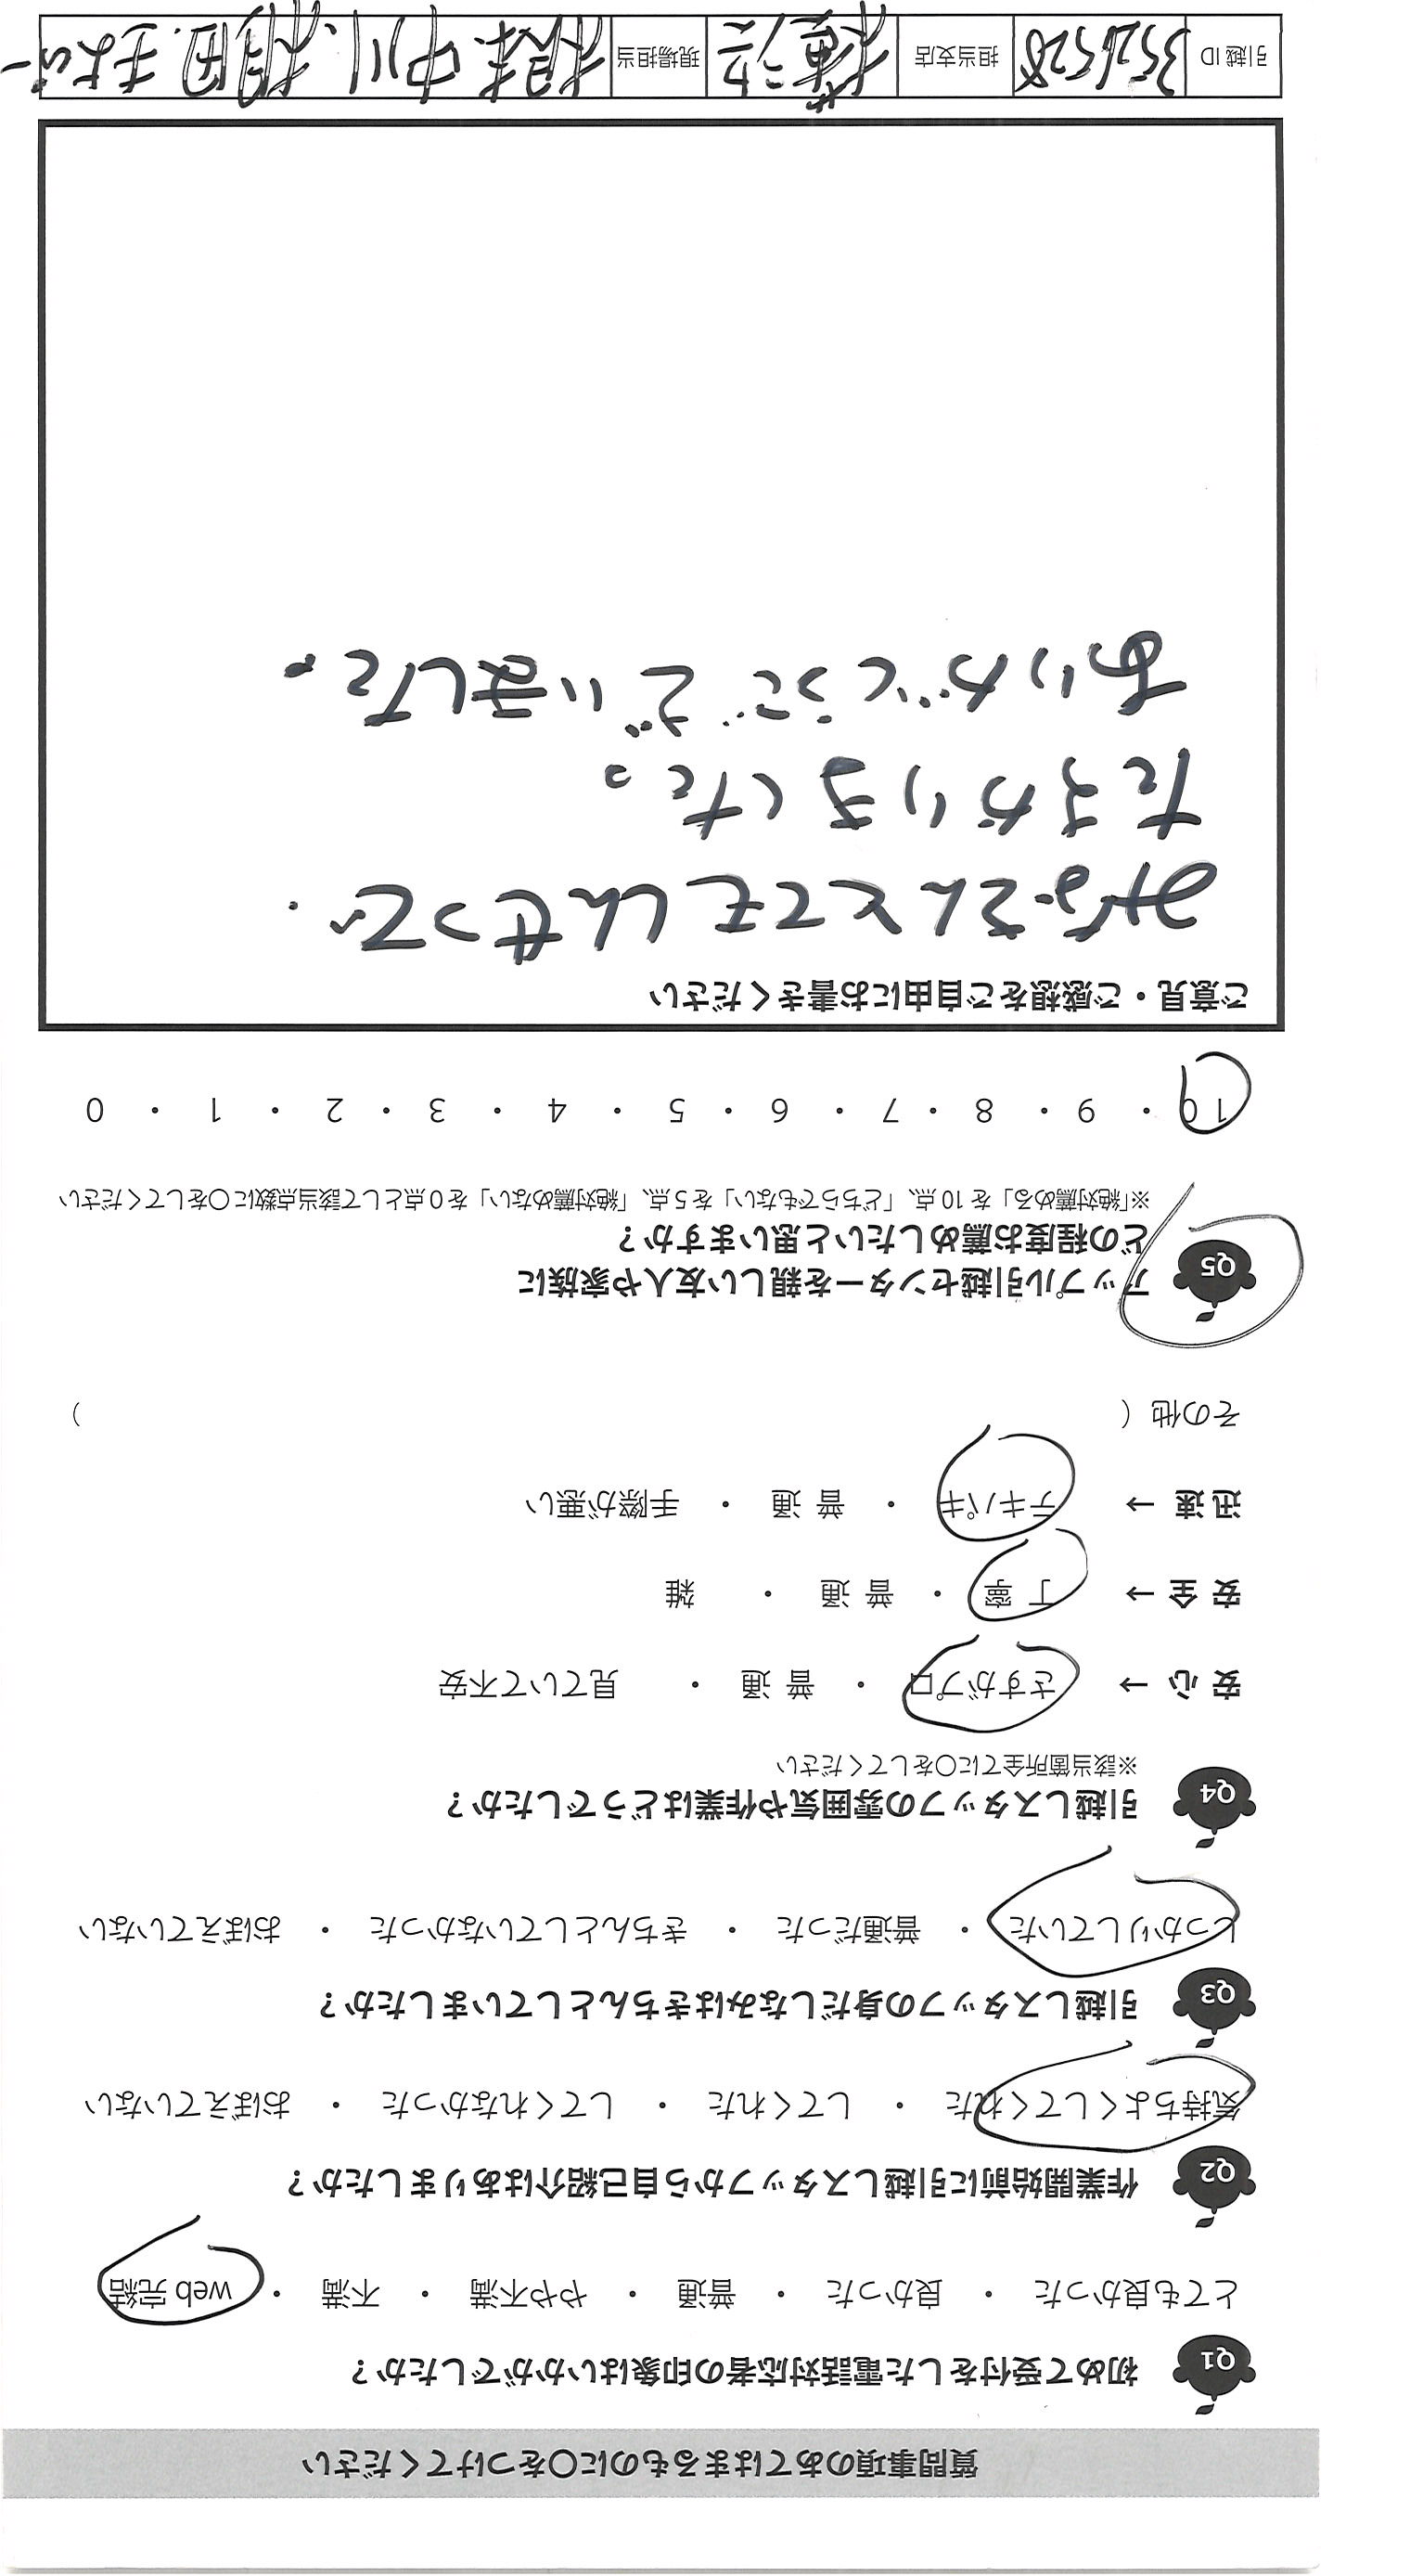 質問事項のあてはまるものに〇をつけてください
Q1 初めて受付をした電話対応者の印象はいかがでしたか？
とても良かった ・ 良かった ・ 普通 ・ やや不満 ・ 不満 ・ web 完結
Q2 作業開始前に引越しスタッフから自己紹介はありましたか？
気持ちよくしてくれた ・ してくれた ・ してくれなかった ・ おぼえていない
Q3 引越しスタッフの身だしなみはきちんとしていましたか？
しっかりしていた ・ 普通だった ・ きちんとしていなかった ・ おぼえていない
Q4 引越しスタッフの雰囲気や作業はどうでしたか？
※該当箇所全てに〇をしてください
安 心 → さすがプロ ・ 普 通 ・ 見ていて不安
安 全 → 丁 寧 ・ 普 通 ・ 雑
迅 速 → テキパキ ・ 普 通 ・ 手際が悪い
その他（ ）
Q5 アップル引越センターを親しい友人や家族に
どの程度お薦めしたいと思いますか？
※「絶対薦める」を 10 点、「どちらでもない」を 5 点、「絶対薦めない」を 0 点として該当点数に〇をしてください
10 ・ 9 ・ 8 ・ 7 ・ 6 ・ 5 ・ 4 ・ 3 ・ 2 ・ 1 ・ 0
ご意見・ご感想をご自由にお書きください
みなさんとてもしんせつで
たすかりました。
ありがとうございました。
引越 ID 3526528 担当支店 現場担当 中川、